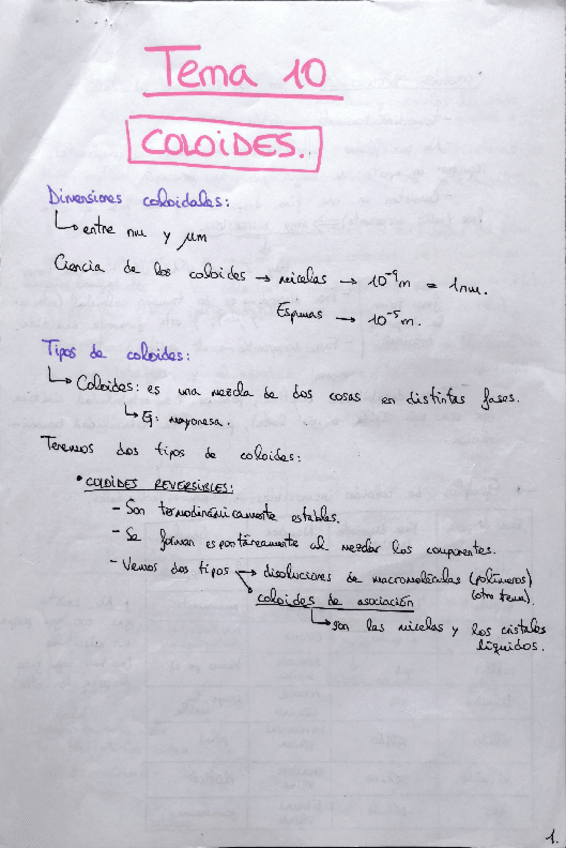 Tema 10
COLOIDES.
Dimensiones coloidales:
↳ entre nm y μm
Ciencia de los coloides → micelas → 10⁻⁹m = 1nm.
Espumas → 10⁻⁵m.
Tipos de coloides:
↳ Coloides: es una mezcla de dos cosas en distintas fases.
↳ Ej: mayonesa.
Tenemos dos tipos de coloides:
• COLOIDES REVERSIBLES:
- Son termodinámicamente estables.
- Se forman espontáneamente al mezclar los componentes.
- Vemos dos tipos → disoluciones de macromoléculas (polímeros)
(otro tema).
coloides de asociación
↳ son las micelas y los cristales
líquidos.
1.